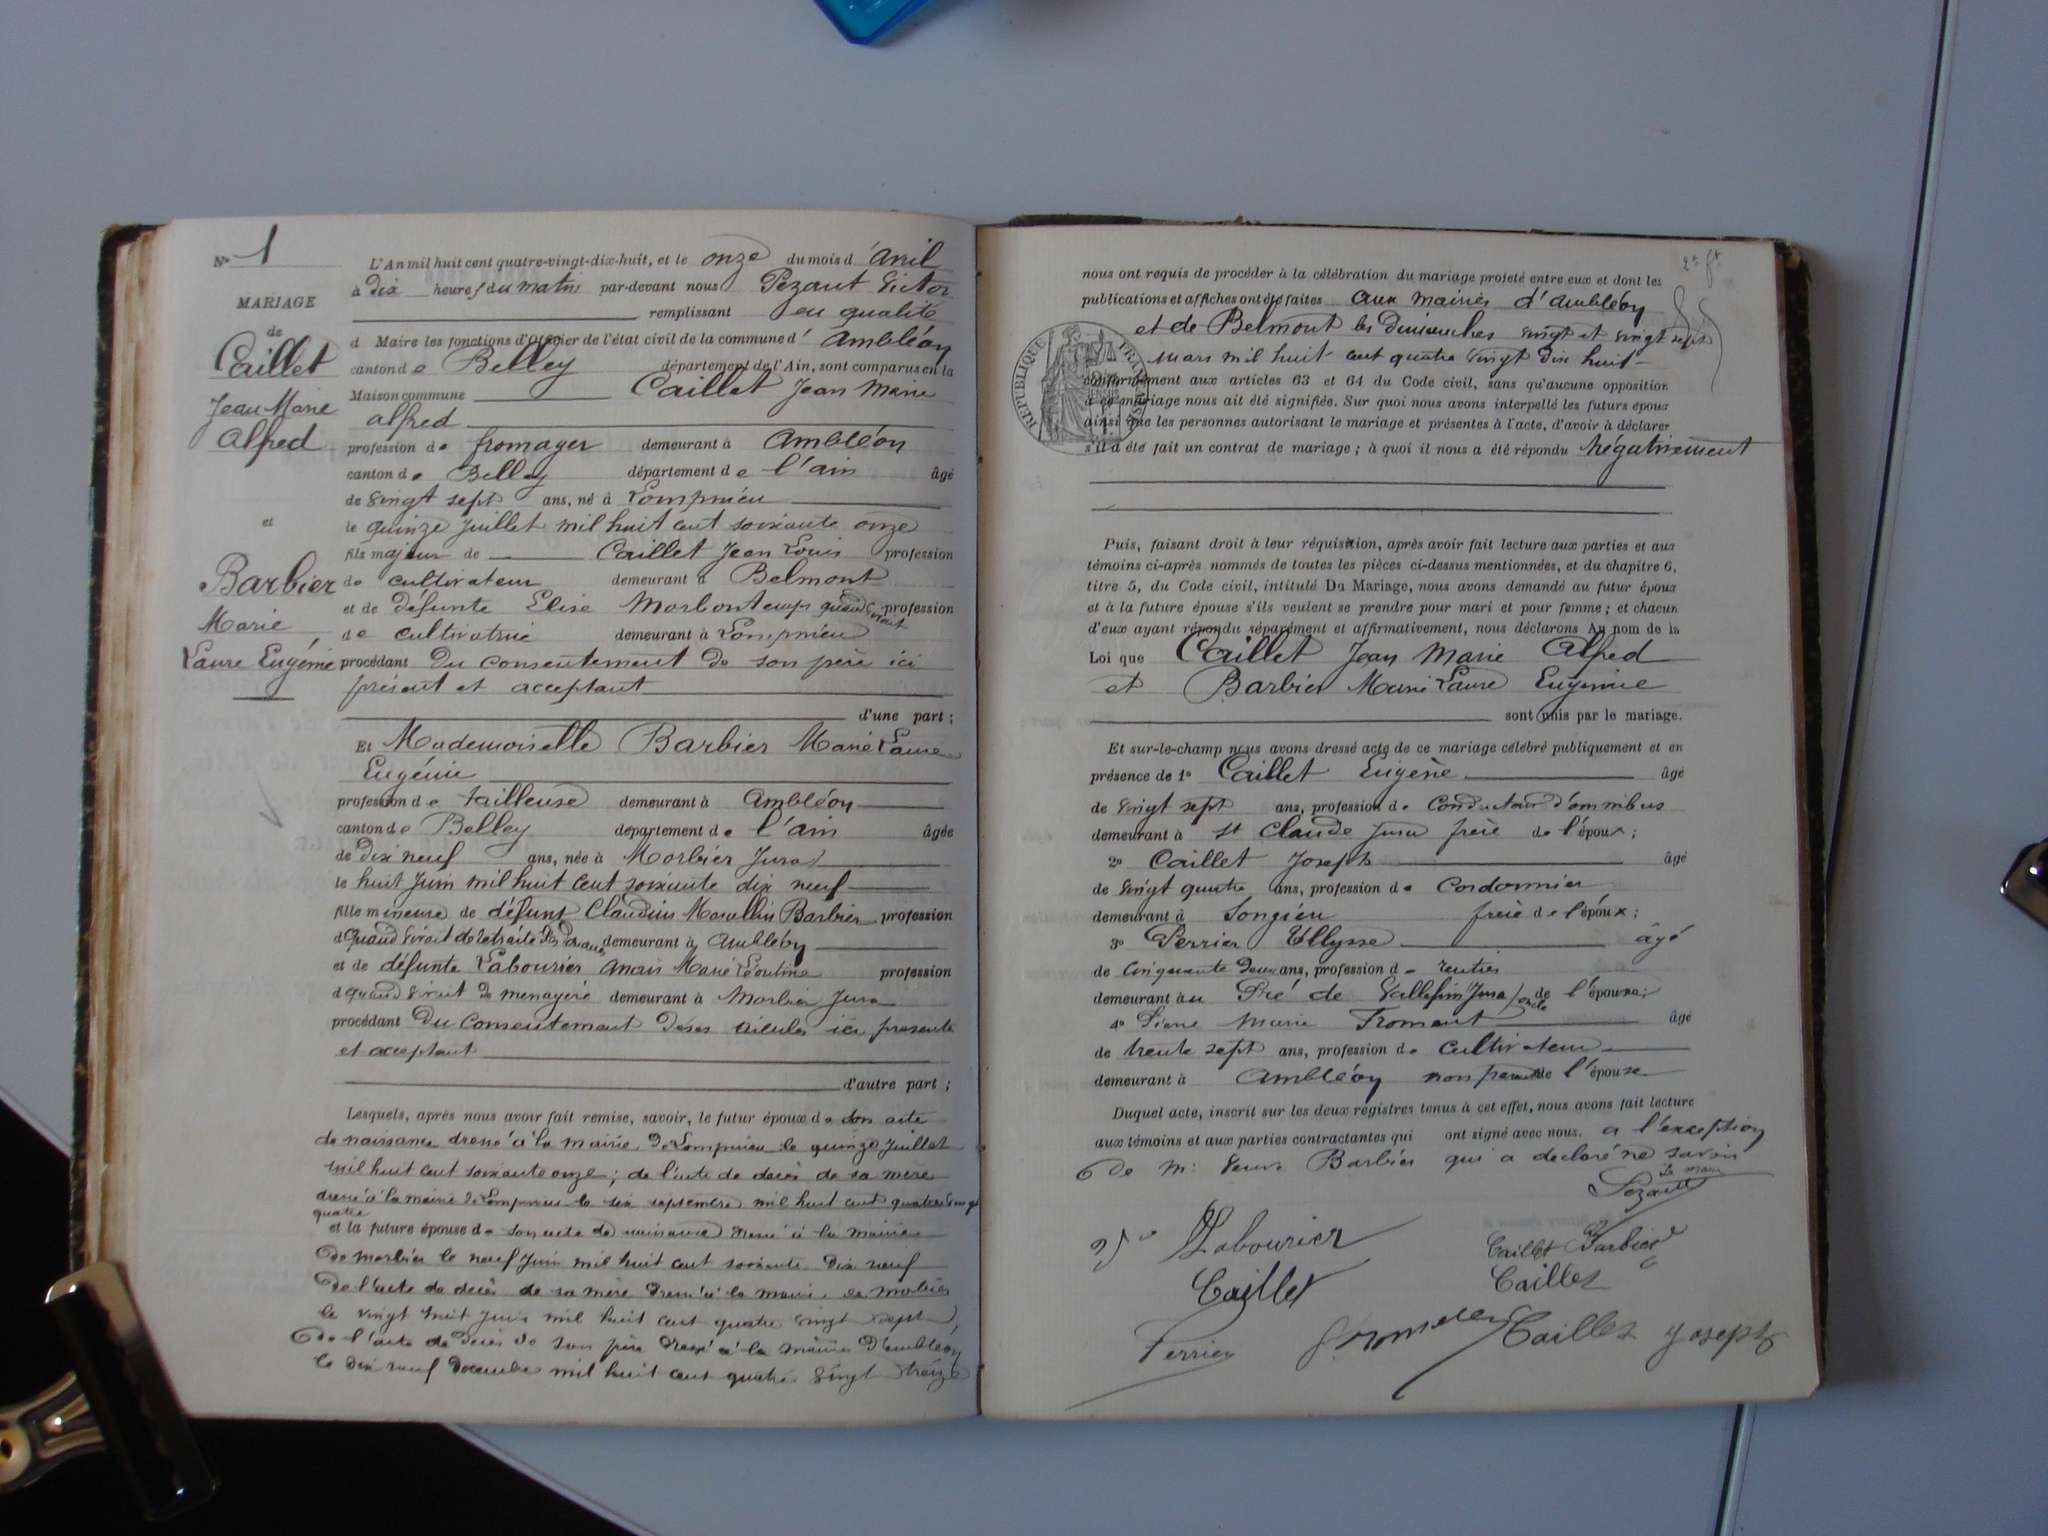 N° 1
MARIAGE
de
Caillet
Jean Marie
Alfred
et
Barbier
Marie
Laure Eugénie
L'An mil huit cent quatre-vingt-dix-huit, et le onze du mois d'avril
à dix heures du matin par-devant nous Pezant Victor
remplissant en qualité
d Maire les fonctions d'Officier de l'état civil de la commune d' Ambléon
canton de Belley département de l'Ain, sont comparus en la
Maison commune Caillet Jean Marie
Alfred
profession de fromager demeurant à Ambléon
canton de Belley département de l'ain âgé
de vingt sept ans, né à Lompnieu
le quinze Juillet mil huit cent soixante onze
fils majeur de Caillet Jean Louis profession
de cultivateur demeurant à Belmont
et de défunte Elise quand vivait profession
de cultivatrice demeurant à Lompnieu
procédant du consentement de son père ici
présent et acceptant
d'une part ;
Et Mademoiselle Barbier Marie Laure
Eugénie
profession de tailleuse demeurant à Ambléon
canton de Belley département de l'ain âgée
de dix neuf ans, née à Morbier Jura
le huit Juin mil huit cent soixante dix neuf
fille mineure de défunt Claudius Marcellin Barbier profession
d quand vivait de retraité des Douanes demeurant à Ambléon
et de défunte Labourier Anaïs Marie Léontine profession
d quand vivait de menagère demeurant à Morbier Jura
procédant du consentement de ses aieules ici presente
et acceptant
d'autre part ;
Lesquels, après nous avoir fait remise, savoir, le futur époux de son acte
de naissance dressé à la mairie de Lompnieu le quinze Juillet
mil huit cent soixante onze ; de l'acte de décès de sa mère
dressé à la mairie de Lompnieu le six septembre mil huit cent quatre vingt
quatre
et la future épouse de son acte de naissance dressé à la mairie
de morbier le neuf Juin mil huit cent soixante dix neuf
de l'acte de décès de sa mère dressé à la mairie de morbier
le vingt huit Juin mil huit cent quatre vingt sept,
de l'acte de décès de son père dressé à la mairie d'ambléon
le dix neuf decembre mil huit cent quatre vingt treize
2e ft
nous ont requis de procéder à la célébration du mariage projeté entre eux et dont les
publications et affiches ont été faites aux mairies d'Ambléon
et de Belmont les dimanches vingt et vingt sept
mars mil huit cent quatre vingt dix huit
RÉPUBLIQUE FRANÇAISE
conformément aux articles 63 et 64 du Code civil, sans qu'aucune opposition
à ce mariage nous ait été signifiée. Sur quoi nous avons interpellé les futurs époux
ainsi que les personnes autorisant le mariage et présentes à l'acte, d'avoir à déclarer
s'il a été fait un contrat de mariage ; à quoi il nous a été répondu négativement
Puis, faisant droit à leur réquisition, après avoir fait lecture aux parties et aux
témoins ci-après nommés de toutes les pièces ci-dessus mentionnées, et du chapitre 6,
titre 5, du Code civil, intitulé Du Mariage, nous avons demandé au futur époux
et à la future épouse s'ils veulent se prendre pour mari et pour femme ; et chacun
d'eux ayant répondu séparément et affirmativement, nous déclarons Au nom de la
Loi que Caillet Jean Marie Alfred
et Barbier Marie Laure Eugénie
sont unis par le mariage.
Et sur-le-champ nous avons dressé acte de ce mariage célébré publiquement et en
présence de 1° Caillet Eugène âgé
de vingt sept ans, profession de Conducteur d'omnibus
demeurant à St Claude Jura frère de l'époux ;
2° Caillet Joseph âgé
de vingt quatre ans, profession de Cordonnier
demeurant à Songieu frère de l'époux ;
3° Perrier Ullysse âgé
de cinquante deux ans, profession de rentier
demeurant au Pré de Jura oncle de l'épouse ;
4° Pierre Marie Froment âgé
de trente sept ans, profession de cultivateur
demeurant à Ambléon non parent de l'épouse
Duquel acte, inscrit sur les deux registres tenus à cet effet, nous avons fait lecture
aux témoins et aux parties contractantes qui ont signé avec nous. a l'exception
de Barbier qui a declaré ne savoir
Le maire
Pezant
Labourier
Caillet Barbier
Caillet
Caillet
Perrier
Caillet Joseph